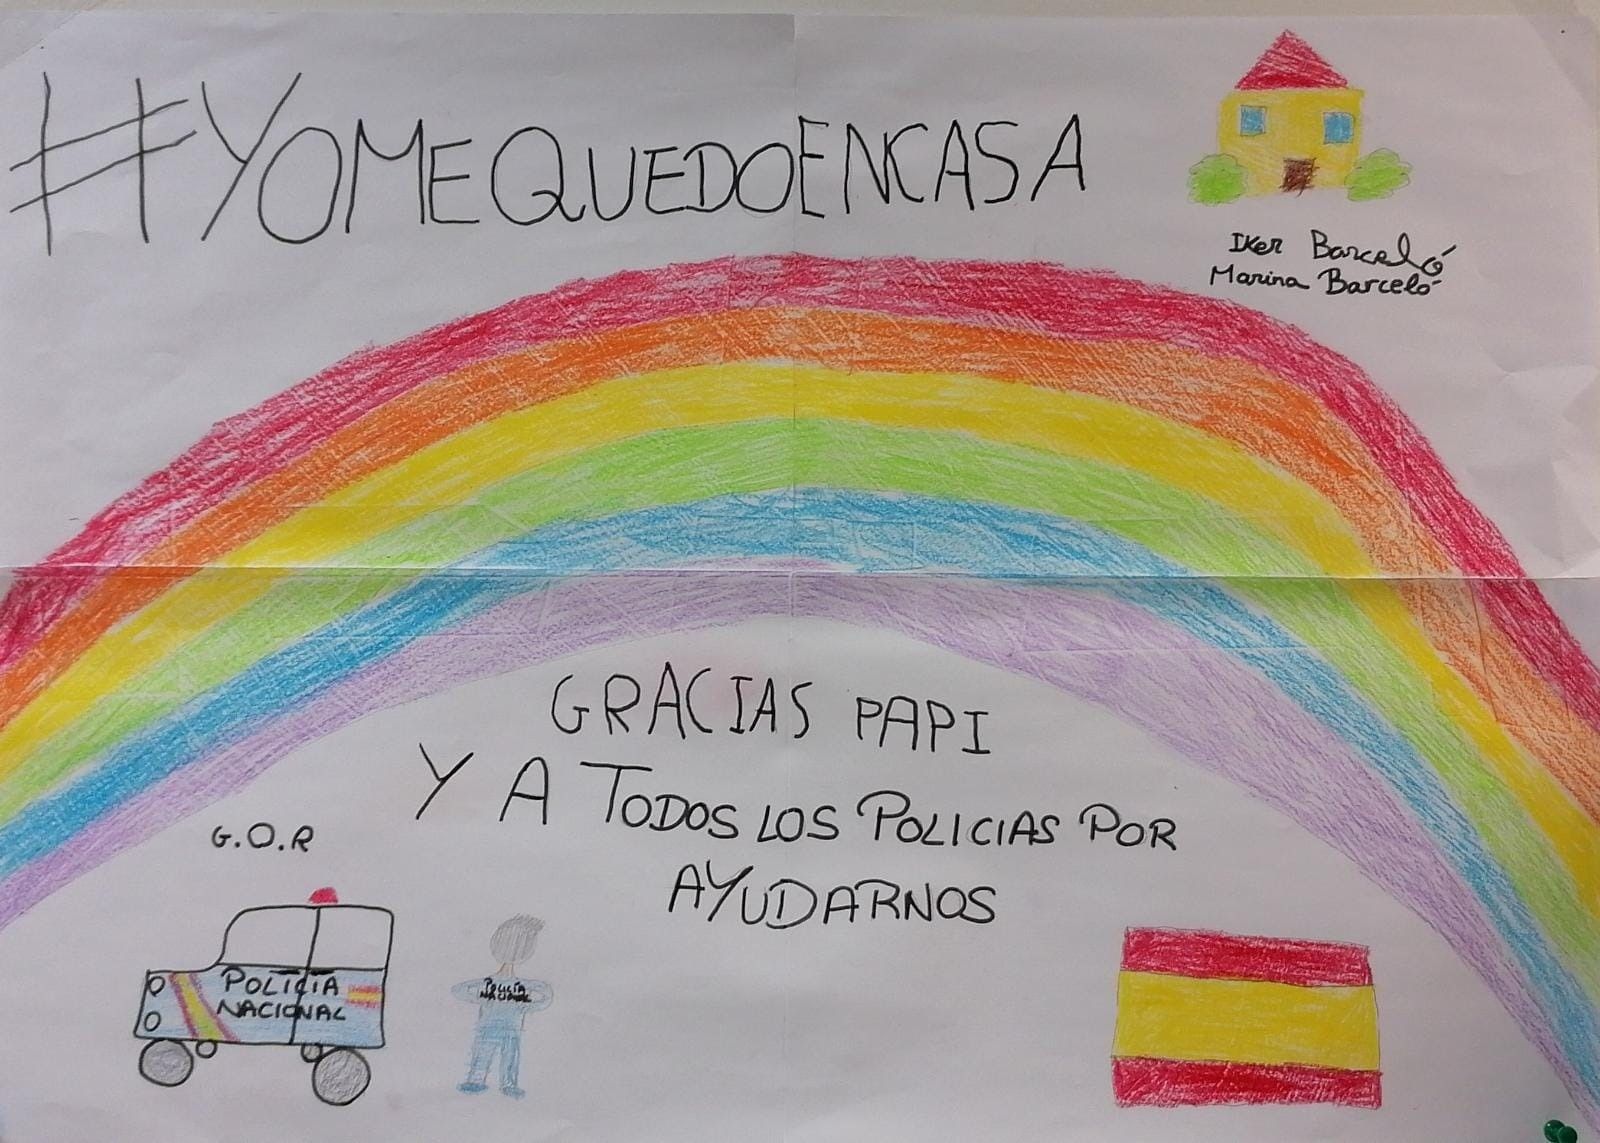 #YOMEQUEDOENCASA
Iker Barceló
Marina Barceló
GRACIAS PAPI
Y A TODOS LOS POLICIAS POR
AYUDARNOS
G.O.R
POLICIA
NACIONAL
POLICÍA
NACIONAL